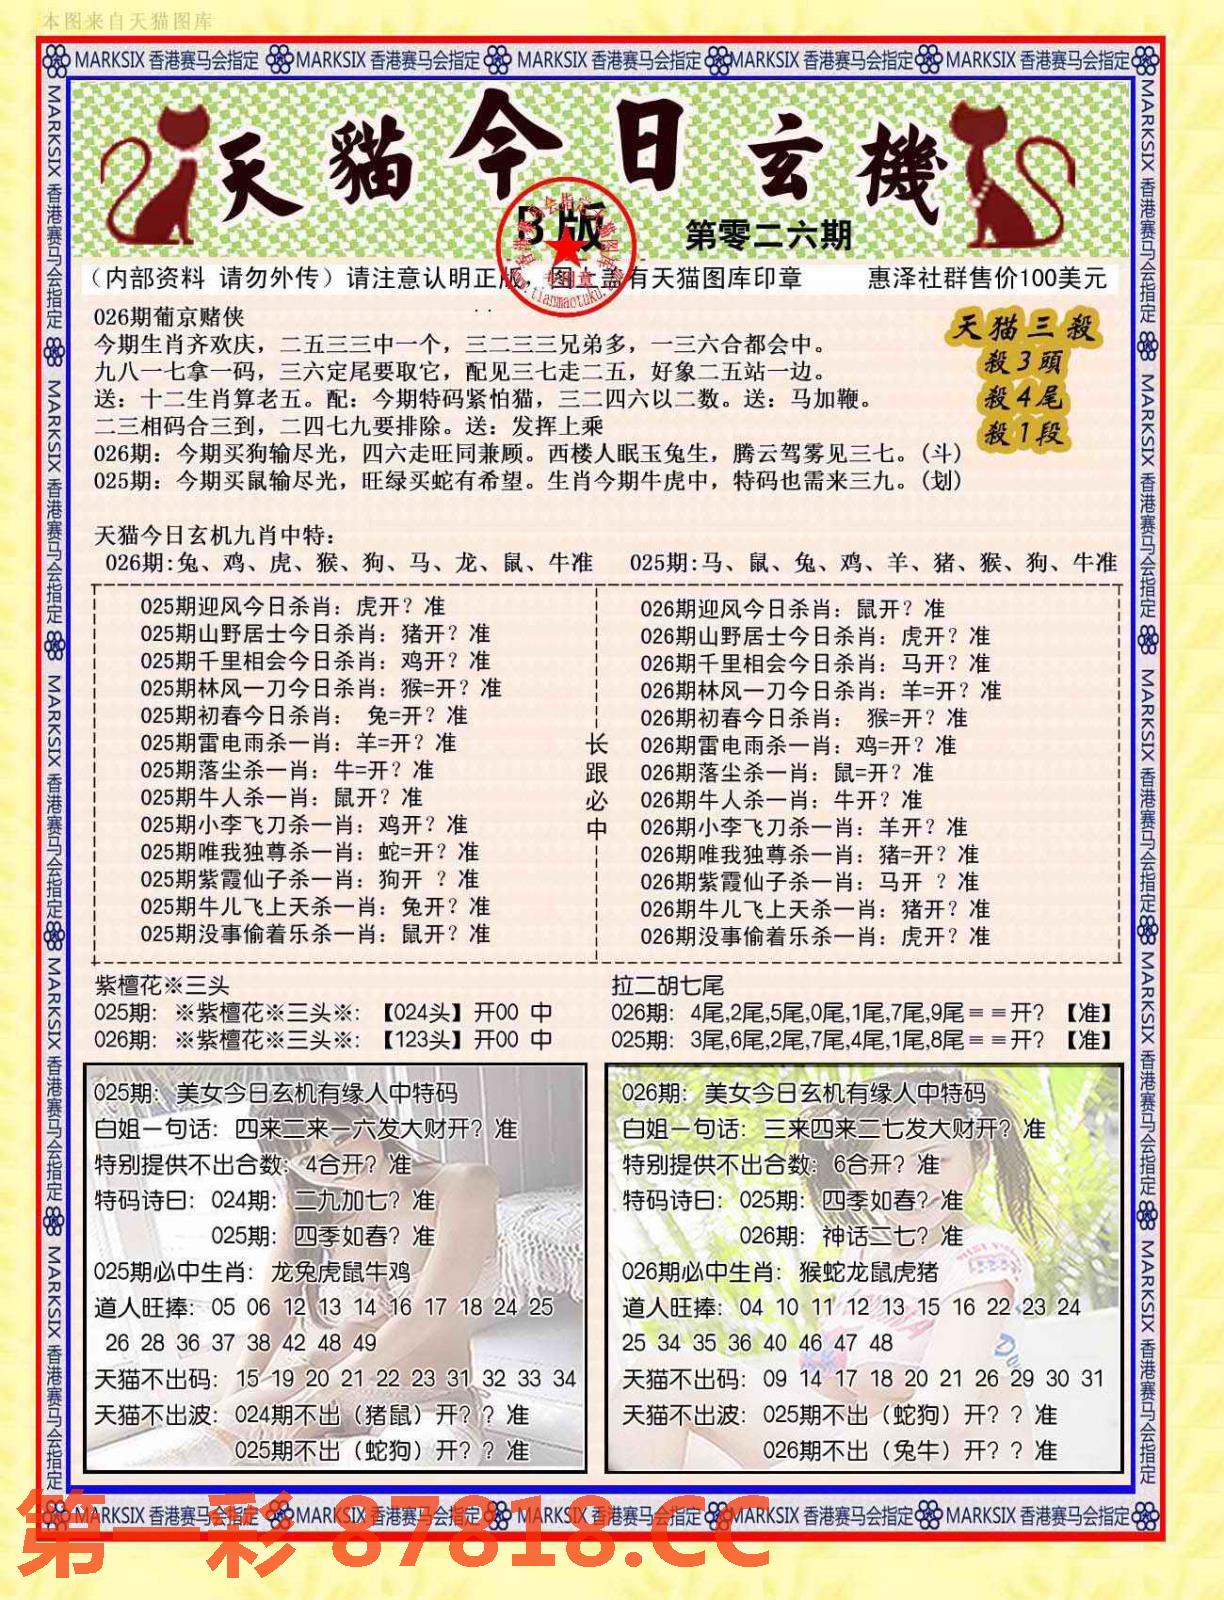 本图来自天猫图库
MARKSIX 香港赛马会指定 MARKSIX 香港赛马会指定 MARKSIX 香港赛马会指定 MARKSIX 香港赛马会指定 MARKSIX 香港赛马会指定
天貓今日玄機
B版
第零二六期
（内部资料 请勿外传）请注意认明正版 图上盖有天猫图库印章 惠泽社群售价100美元
026期葡京赌侠
今期生肖齐欢庆，二五三三中一个，三二三三兄弟多，一三六合都会中。
九八一七拿一码，三六定尾要取它，配见三七走二五，好象二五站一边。
送：十二生肖算老五。配：今期特码紧怕猫，三二四六以二数。送：马加鞭。
二三相码合三到，二四七九要排除。送：发挥上乘
026期：今期买狗输尽光，四六走旺同兼顾。西楼人眠玉兔生，腾云驾雾见三七。(斗)
025期：今期买鼠输尽光，旺绿买蛇有希望。生肖今期牛虎中，特码也需来三九。(划)
天猫三殺
殺3頭
殺4尾
殺1段
天猫今日玄机九肖中特：
026期:兔、鸡、虎、猴、狗、马、龙、鼠、牛准 025期:马、鼠、兔、鸡、羊、猪、猴、狗、牛准
025期迎风今日杀肖：虎开？准
025期山野居士今日杀肖：猪开？准
025期千里相会今日杀肖：鸡开？准
025期林风一刀今日杀肖：猴=开？准
025期初春今日杀肖： 兔=开？准
025期雷电雨杀一肖：羊=开？准
025期落尘杀一肖：牛=开？准
025期牛人杀一肖：鼠开？准
025期小李飞刀杀一肖：鸡开？准
025期唯我独尊杀一肖：蛇=开？准
025期紫霞仙子杀一肖：狗开 ？准
025期牛儿飞上天杀一肖：兔开？准
025期没事偷着乐杀一肖：鼠开？准
长跟必中
026期迎风今日杀肖：鼠开？准
026期山野居士今日杀肖：虎开？准
026期千里相会今日杀肖：马开？准
026期林风一刀今日杀肖：羊=开？准
026期初春今日杀肖： 猴=开？准
026期雷电雨杀一肖：鸡=开？准
026期落尘杀一肖：鼠=开？准
026期牛人杀一肖：牛开？准
026期小李飞刀杀一肖：羊开？准
026期唯我独尊杀一肖：猪=开？准
026期紫霞仙子杀一肖：马开 ？准
026期牛儿飞上天杀一肖：猪开？准
026期没事偷着乐杀一肖：虎开？准
紫檀花※三头
025期：※紫檀花※三头※：【024头】开00 中
026期：※紫檀花※三头※：【123头】开00 中
拉二胡七尾
026期：4尾,2尾,5尾,0尾,1尾,7尾,9尾＝＝开？【准】
025期：3尾,6尾,2尾,7尾,4尾,1尾,8尾＝＝开？【准】
025期：美女今日玄机有缘人中特码
白姐一句话：四来二来一六发大财开？准
特别提供不出合数：4合开？准
特码诗曰：024期：二九加七？准
025期：四季如春？准
025期必中生肖：龙兔虎鼠牛鸡
道人旺捧：05 06 12 13 14 16 17 18 24 25
26 28 36 37 38 42 48 49
天猫不出码：15 19 20 21 22 23 31 32 33 34
天猫不出波：024期不出（猪鼠）开？？准
025期不出（蛇狗）开？？准
026期：美女今日玄机有缘人中特码
白姐一句话：三来四来二七发大财开？准
特别提供不出合数：6合开？准
特码诗曰：025期：四季如春？准
026期：神话二七？准
026期必中生肖：猴蛇龙鼠虎猪
道人旺捧：04 10 11 12 13 15 16 22 23 24
25 34 35 36 40 46 47 48
天猫不出码：09 14 17 18 20 21 26 29 30 31
天猫不出波：025期不出（蛇狗）开？？准
026期不出（兔牛）开？？准
MARKSIX 香港赛马会指定 MARKSIX 香港赛马会指定 MARKSIX 香港赛马会指定 MARKSIX 香港赛马会指定 MARKSIX 香港赛马会指定
MARKSIX 香港赛马会指定 MARKSIX 香港赛马会指定 MARKSIX 香港赛马会指定 MARKSIX 香港赛马会指定 MARKSIX 香港赛马会指定
MARKSIX 香港赛马会指定 MARKSIX 香港赛马会指定 MARKSIX 香港赛马会指定 MARKSIX 香港赛马会指定 MARKSIX 香港赛马会指定
第一彩 87818.CC